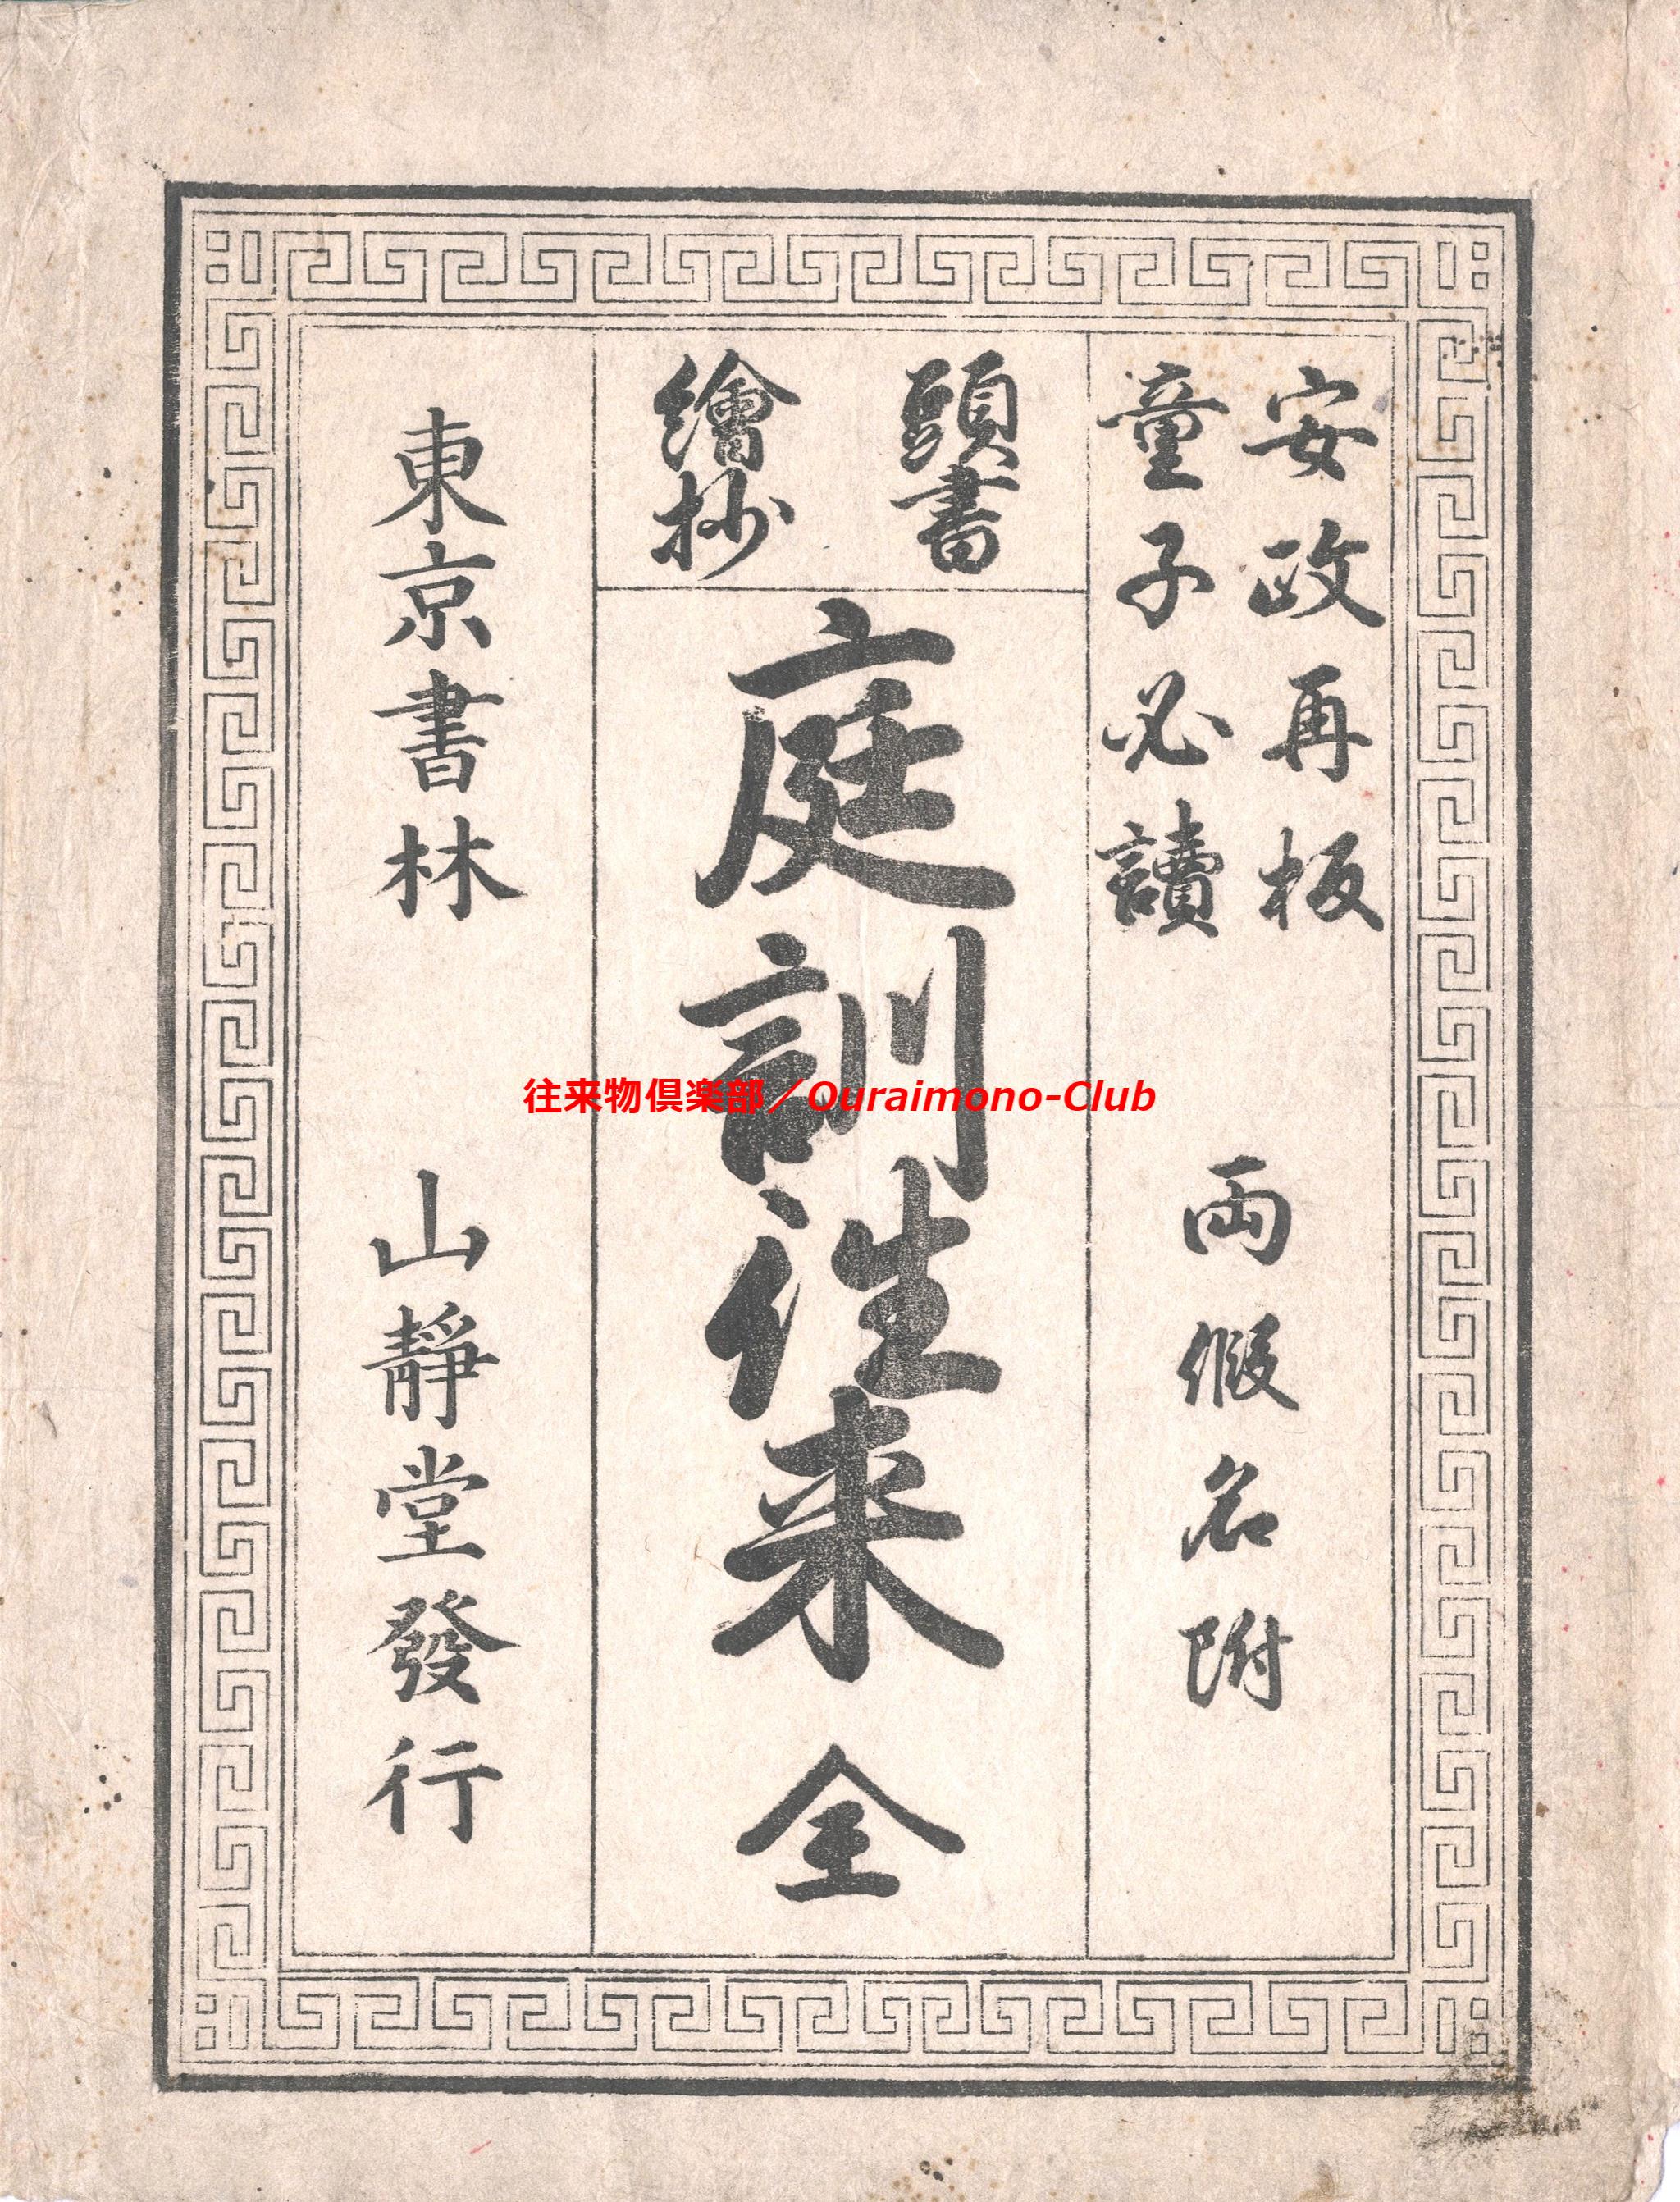 安政再板
童子必讀
両假名附
頭書
繪抄
庭訓往来 全
東京書林 山靜堂發行
往来物倶楽部／Ouraimono-Club